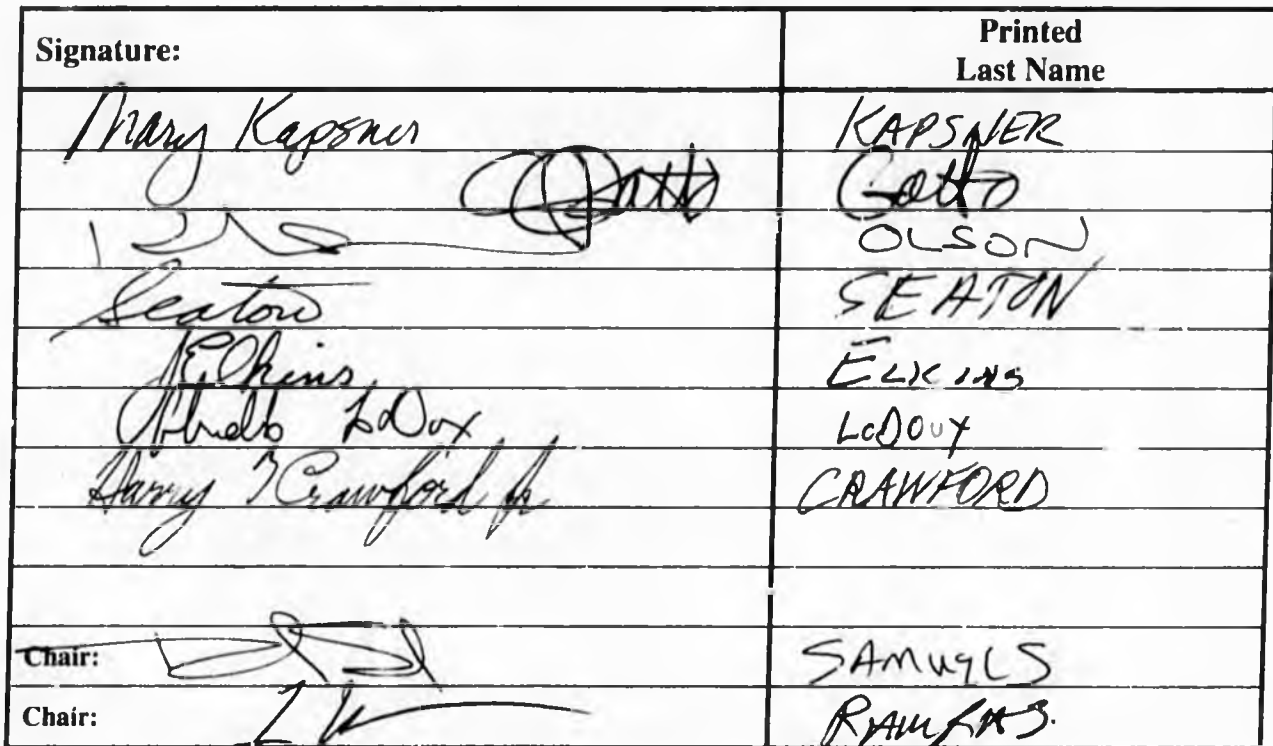 Signature: Printed
Last Name
Mary Kapsner KAPSNER
Gatto Gatto
OLSON
Seaton SEATON
JElkins ELKINS
LeDoux
Harry T Crawford Jr CRAWFORD
Chair: SAMUELS
Chair: RAMRAS.